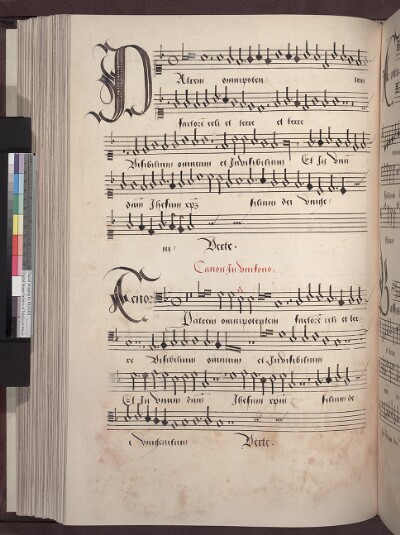 Patrem omnipoten tem
factorē celi et terre et terre
Visibilium omnium et Invisibilium Et In vnū
dnū Jhesum xpm filium dei vnige
ni Verte.
Canon In vnisono.
Tenor
Patrem omnipotentem factorē celi et ter
re Visibilium omnium et Invisibilium
Et In vnum dnū Jhesum xpm filium de
i vnigenitum Verte.